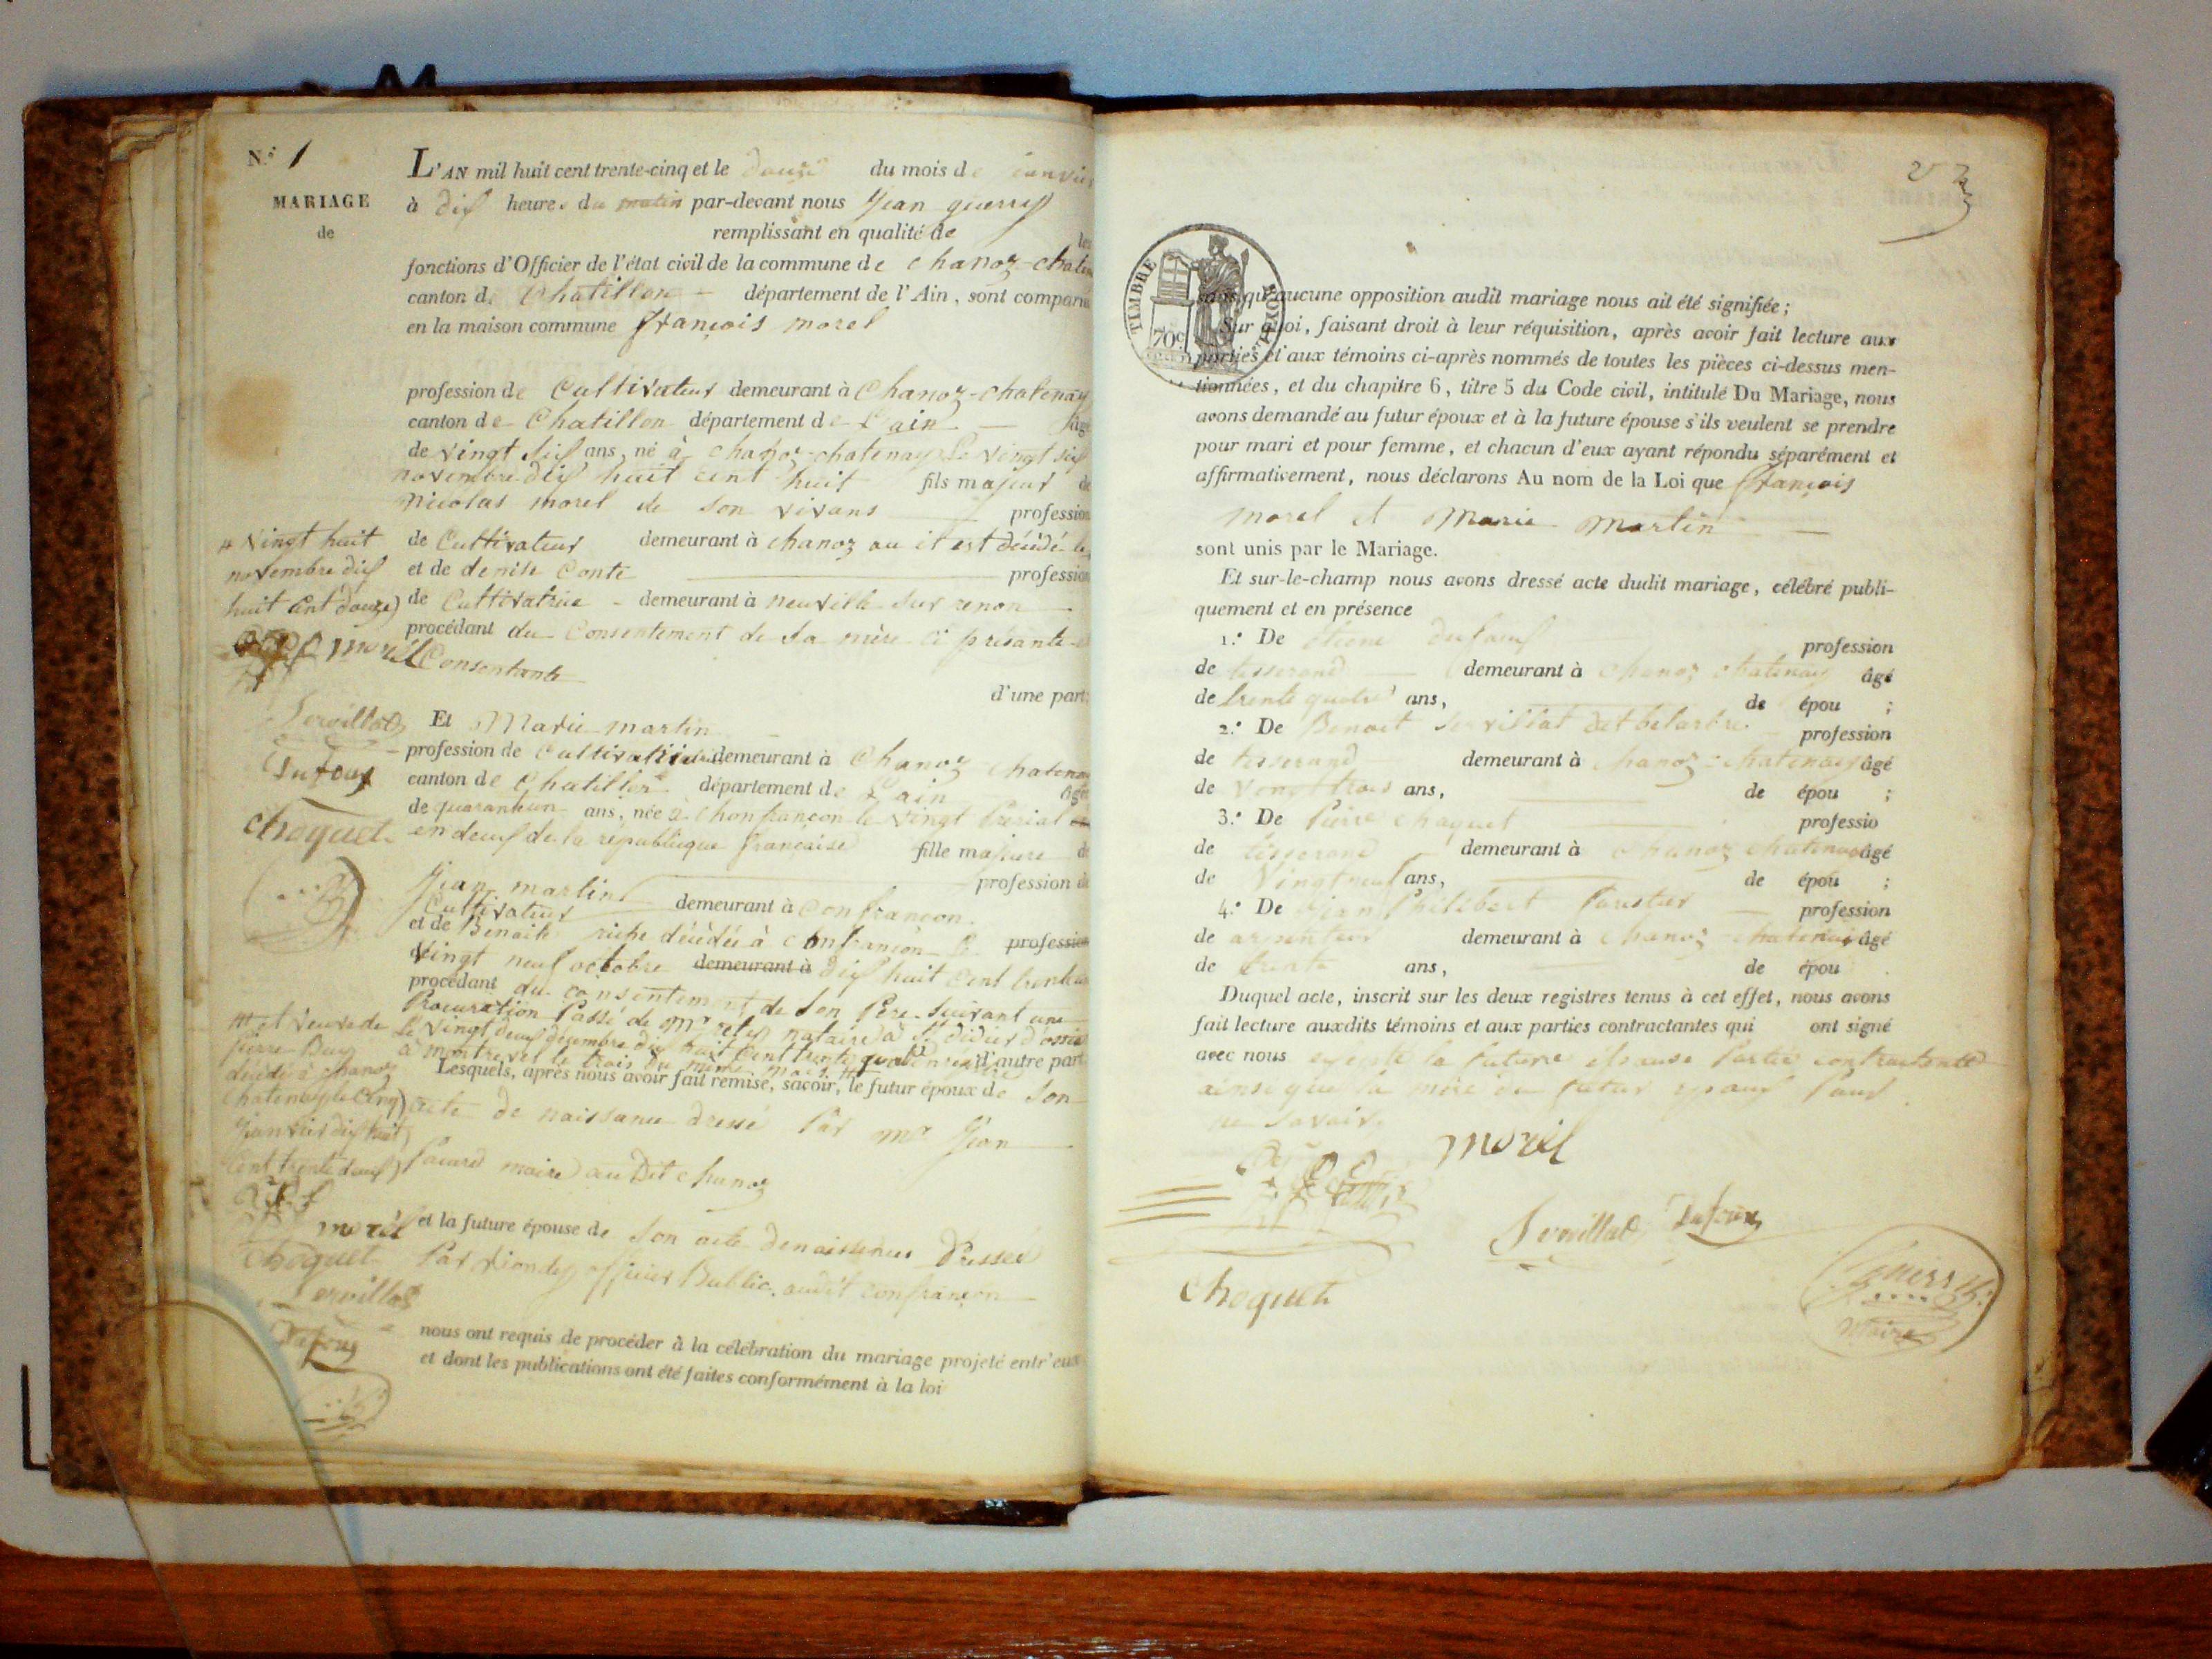 N.° 1
MARIAGE
de
L'AN mil huit cent trente-cinq et le douze du mois de janvier
à dix heures du matin par-devant nous Jean
remplissant en qualité de les
fonctions d'Officier de l'état civil de la commune de chanoz-chatenay
canton de Chatillon département de l'Ain, sont comparus
en la maison commune françois morel
profession de Cultivateur demeurant à Chanoz-chatenay
canton de Chatillon département de L'ain âgé
de vingt six ans, né à chanoz-chatenay le vingt six
novembre dix huit cent huit fils majeur de
Nicolas morel de son vivans profession
de Cultivateur demeurant à chanoz ou il est décédé le
et de denise Conte profession
de Cultivatrice demeurant à neuville sur renon
procédant du Consentement de sa mère ci présante et
Consentante
d'une part;
# vingt huit
novembre dix
huit cent douze)
morel
Servillat
Dufour
choquet
Et Marie martin
profession de Cultivatrice demeurant à Chanoz chatenay
canton de Chatillon département de L'ain âgée
de quarante un ans, née à Chonfrançon le vingt Prerial
en deux de la république française fille majeure de
Jean martin profession de
Cultivateur demeurant à Confrançon
et de Benoite riche décédée à Confrançon le profession
vingt neuf octobre demeurant à dix huit cent trente un
procédant du consentement de son Père suivant une
Procuration Passé de mr notaire à St didier d'
Le vingt deux décembre dix huit cent trente quatre d'autre part
à montrevel le trois du même mois
Lesquels, après nous avoir fait remise, savoir, le futur époux de Son
acte de naissance dressé Par mr Jean
maire au Dit chanoz
et veuve de
pierre
décédé à chanoz
Chatenay le Cinq
janvier dix huit
Cent trente deux)
morel
choquet
Servillat
Dufour
et la future épouse de Son acte de naissance Dressé
Par officier Public audit Confrançon
nous ont requis de procéder à la célébration du mariage projeté entr'eux
et dont les publications ont été faites conformément à la loi
TIMBRE ROYAL
70c
sans qu'aucune opposition audit mariage nous ait été signifiée;
Sur quoi, faisant droit à leur réquisition, après avoir fait lecture aux
parties et aux témoins ci-après nommés de toutes les pièces ci-dessus men-
tionnées, et du chapitre 6, titre 5 du Code civil, intitulé Du Mariage, nous
avons demandé au futur époux et à la future épouse s'ils veulent se prendre
pour mari et pour femme, et chacun d'eux ayant répondu séparément et
affirmativement, nous déclarons Au nom de la Loi que françois
morel et Marie martin
sont unis par le Mariage.
Et sur-le-champ nous avons dressé acte dudit mariage, célébré publi-
quement et en présence
1.° De étiene profession
de tisserand demeurant à chanoz chatenay âgé
de trente quatre ans, de épou ;
2.° De Benoit Servillat profession
de tisserand demeurant à chanoz-chatenay âgé
de vingt trois ans, de épou ;
3.° De Pierre choquet professio
de tisserand demeurant à chanoz chatenay âgé
de vingt neuf ans, de épou ;
4.° De jean Philibert profession
de arpenteur demeurant à Chanoz chatenay âgé
de trente ans, de épou
Duquel acte, inscrit sur les deux registres tenus à cet effet, nous avons
fait lecture auxdits témoins et aux parties contractantes qui ont signé
avec nous excepté la future épouse Partie contractante
ainsi que la mère du futur époux Pour
ne Savoir
morel
Servillat Dufour
choquet
maire